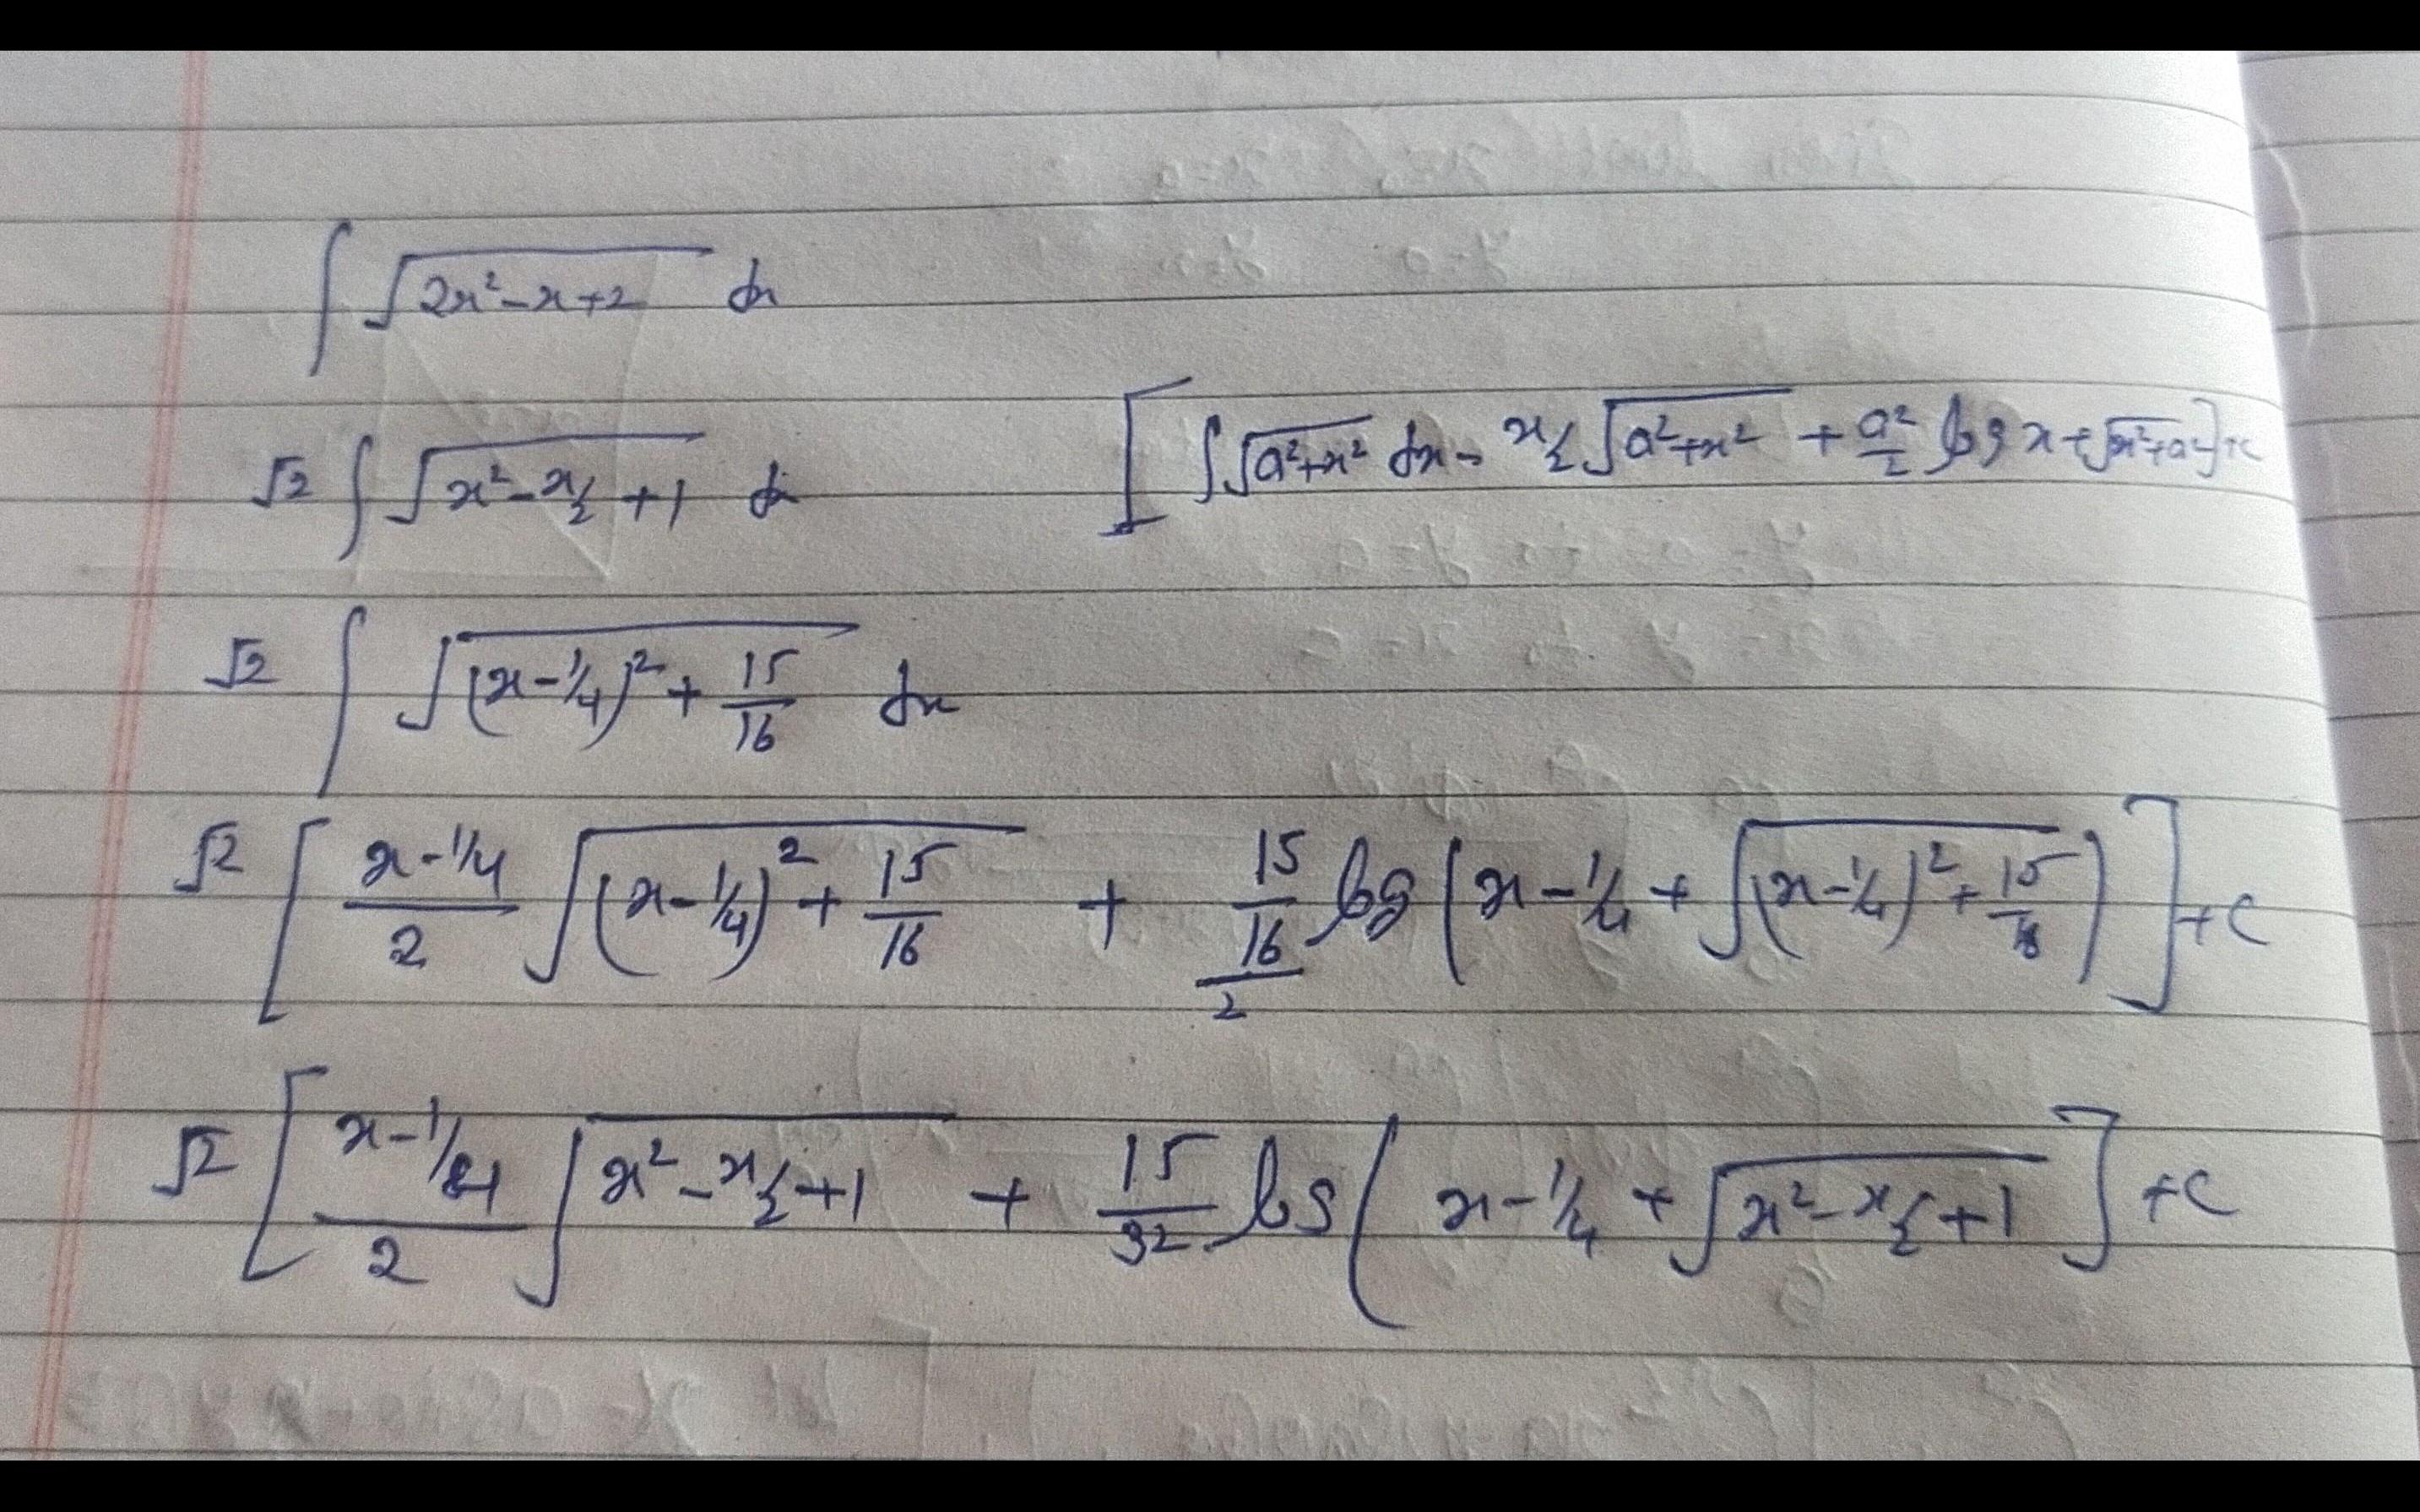 ∫ √(2x²-x+2) dx
√2 ∫ √(x²-x/2+1) dx [∫√(a²+x²) dx = x/2 √(a²+x²) + a²/2 log x+√(x²+a²)]+c
√2 ∫ √((x-1/4)²+15/16) dx
√2 [(x-1/4)/2 √((x-1/4)²+15/16) + (15/16)/2 log(x-1/4+√((x-1/4)²+15/16))]+c
√2 [(x-1/4)/2 √(x²-x/2+1) + 15/32 log(x-1/4+√(x²-x/2+1)]+c